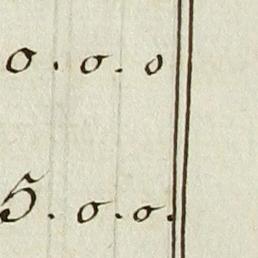 0.0.0
5.0.0.